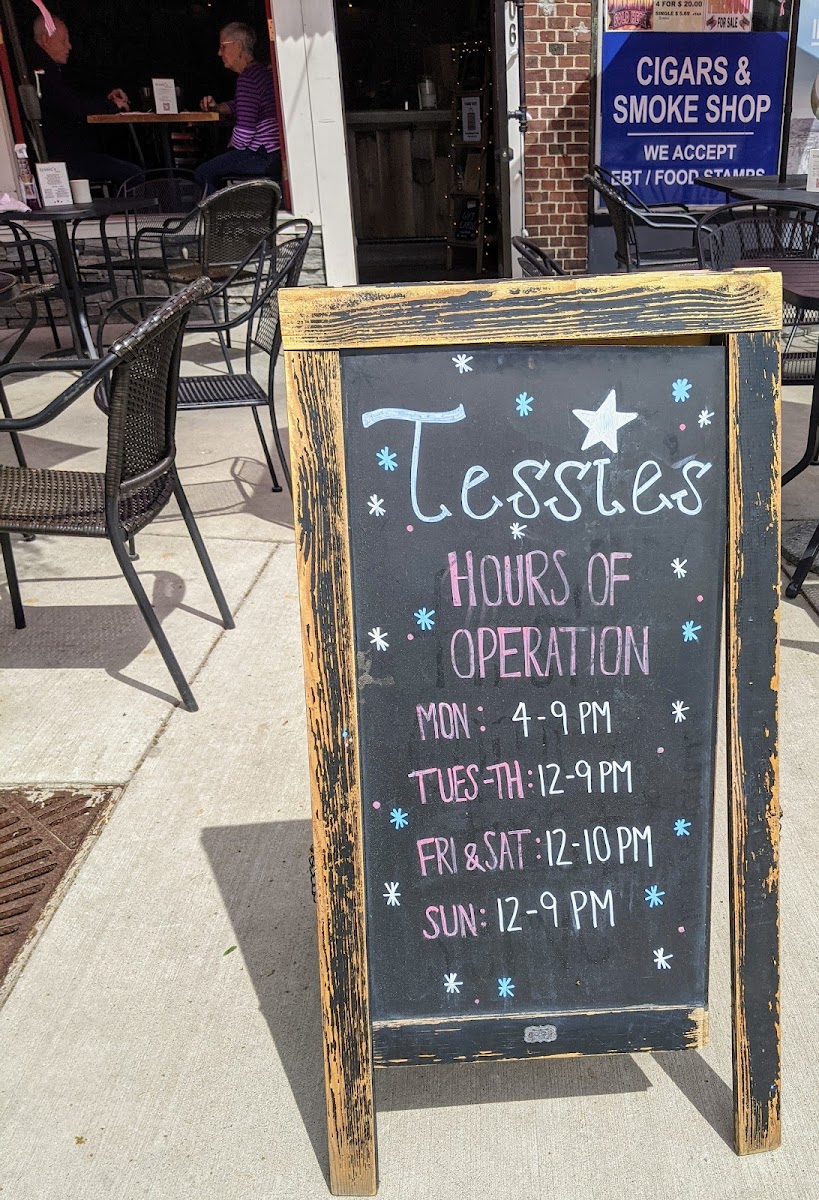 4 FOR $ 20.00
FOR SALE
CIGARS &
SMOKE SHOP
WE ACCEPT
EBT / FOOD STAMPS
Tessies
HOURS OF
OPERATION
MON: 4-9 PM
TUES-TH: 12-9 PM
FRI & SAT: 12-10 PM
SUN: 12-9 PM